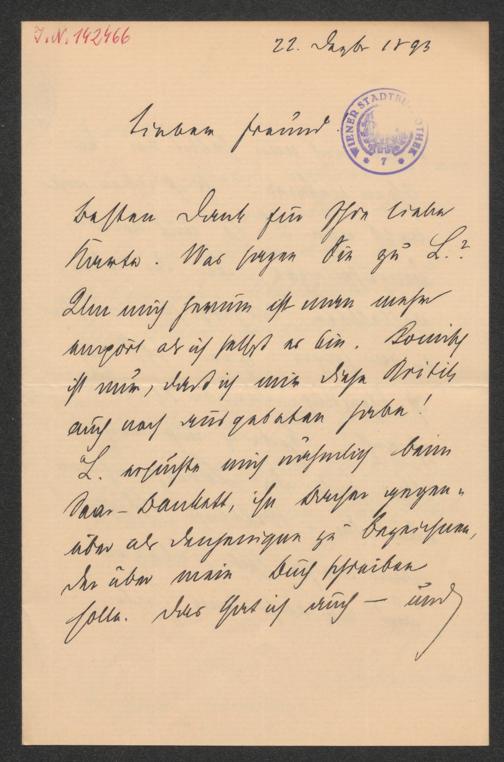 J. N. 142466
22. Dezbr 1893
WIENER STADTBIBLIOTHEK
7
Lieber Freund.
besten Dank für Ihre liebe
Karte. Was sagen Sie zu L.?
Um mich herum ist man mehr
empört als ich selbst es bin. Komisch
ist nur, dass ich mir diese Kritik
auch noch ausgebeten habe!
L. ersuchte mich nähmlich beim
Saar-Bankett, ihn Bacher gegen-
über als denjenigen zu bezeichnen,
der über mein Buch schreiben
solle. Das that ich auch — und